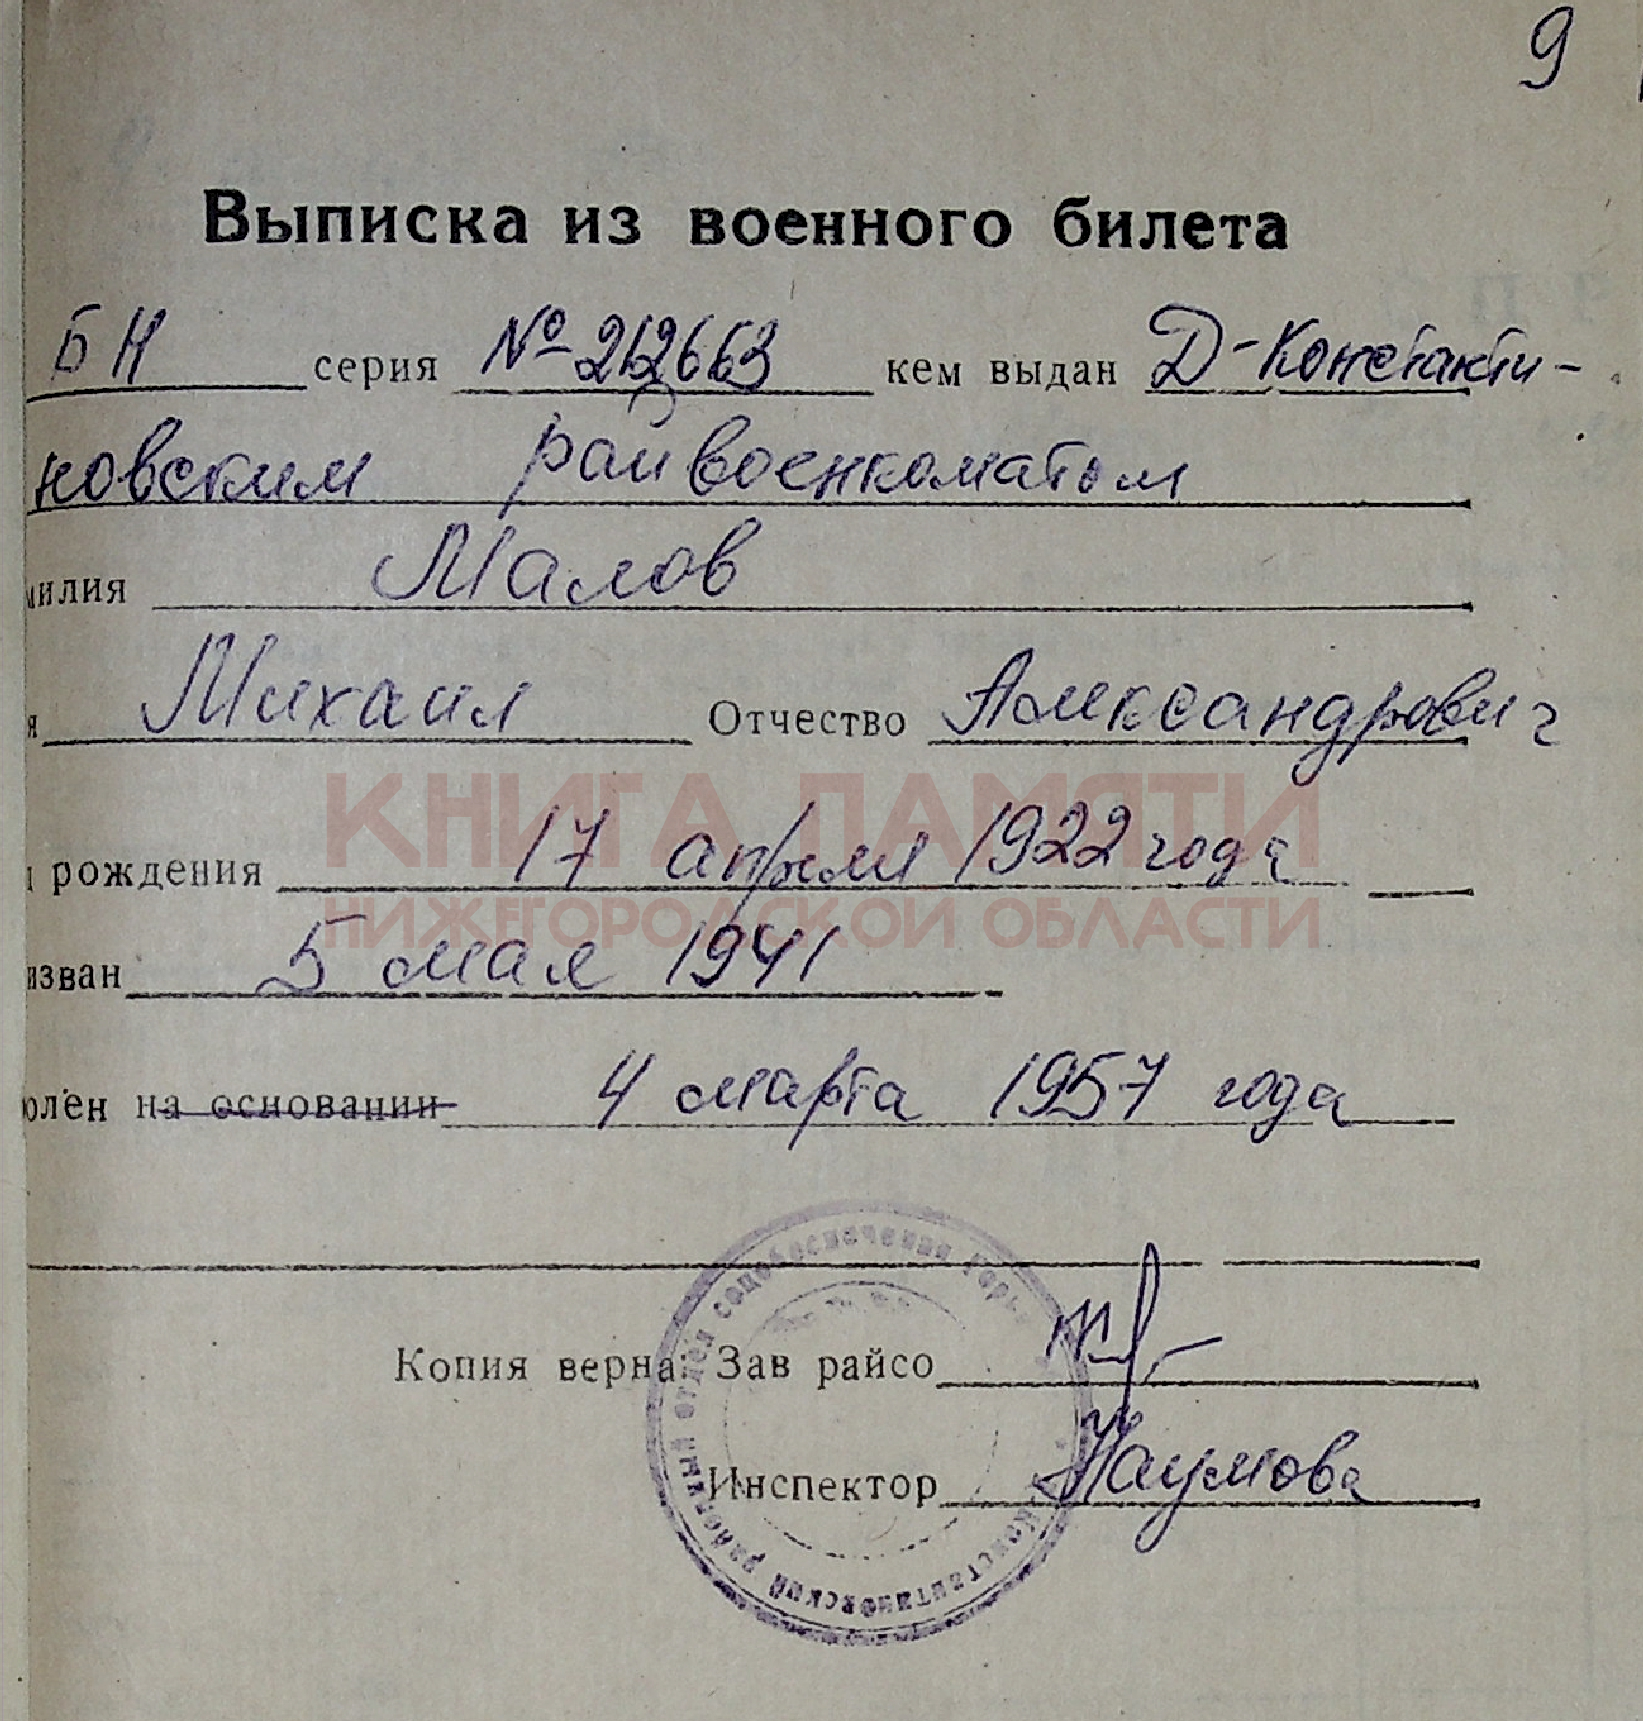 9
Выписка из военного билета
БН серия № 212663 кем выдан Д-Константи-
новским райвоенкоматом
милия Малов
я Михаил Отчество Александрович
КНИГА ПАМЯТИ
рождения 17 апреля 1922 года
НИЖЕГОРОДСКОЙ ОБЛАСТИ
изван 5 мая 1941
олен на основании 4 марта 1957 года
Копия верна: Зав райсо
Инспектор Наумова
Константиновский районный отдел собеспечения Горьк